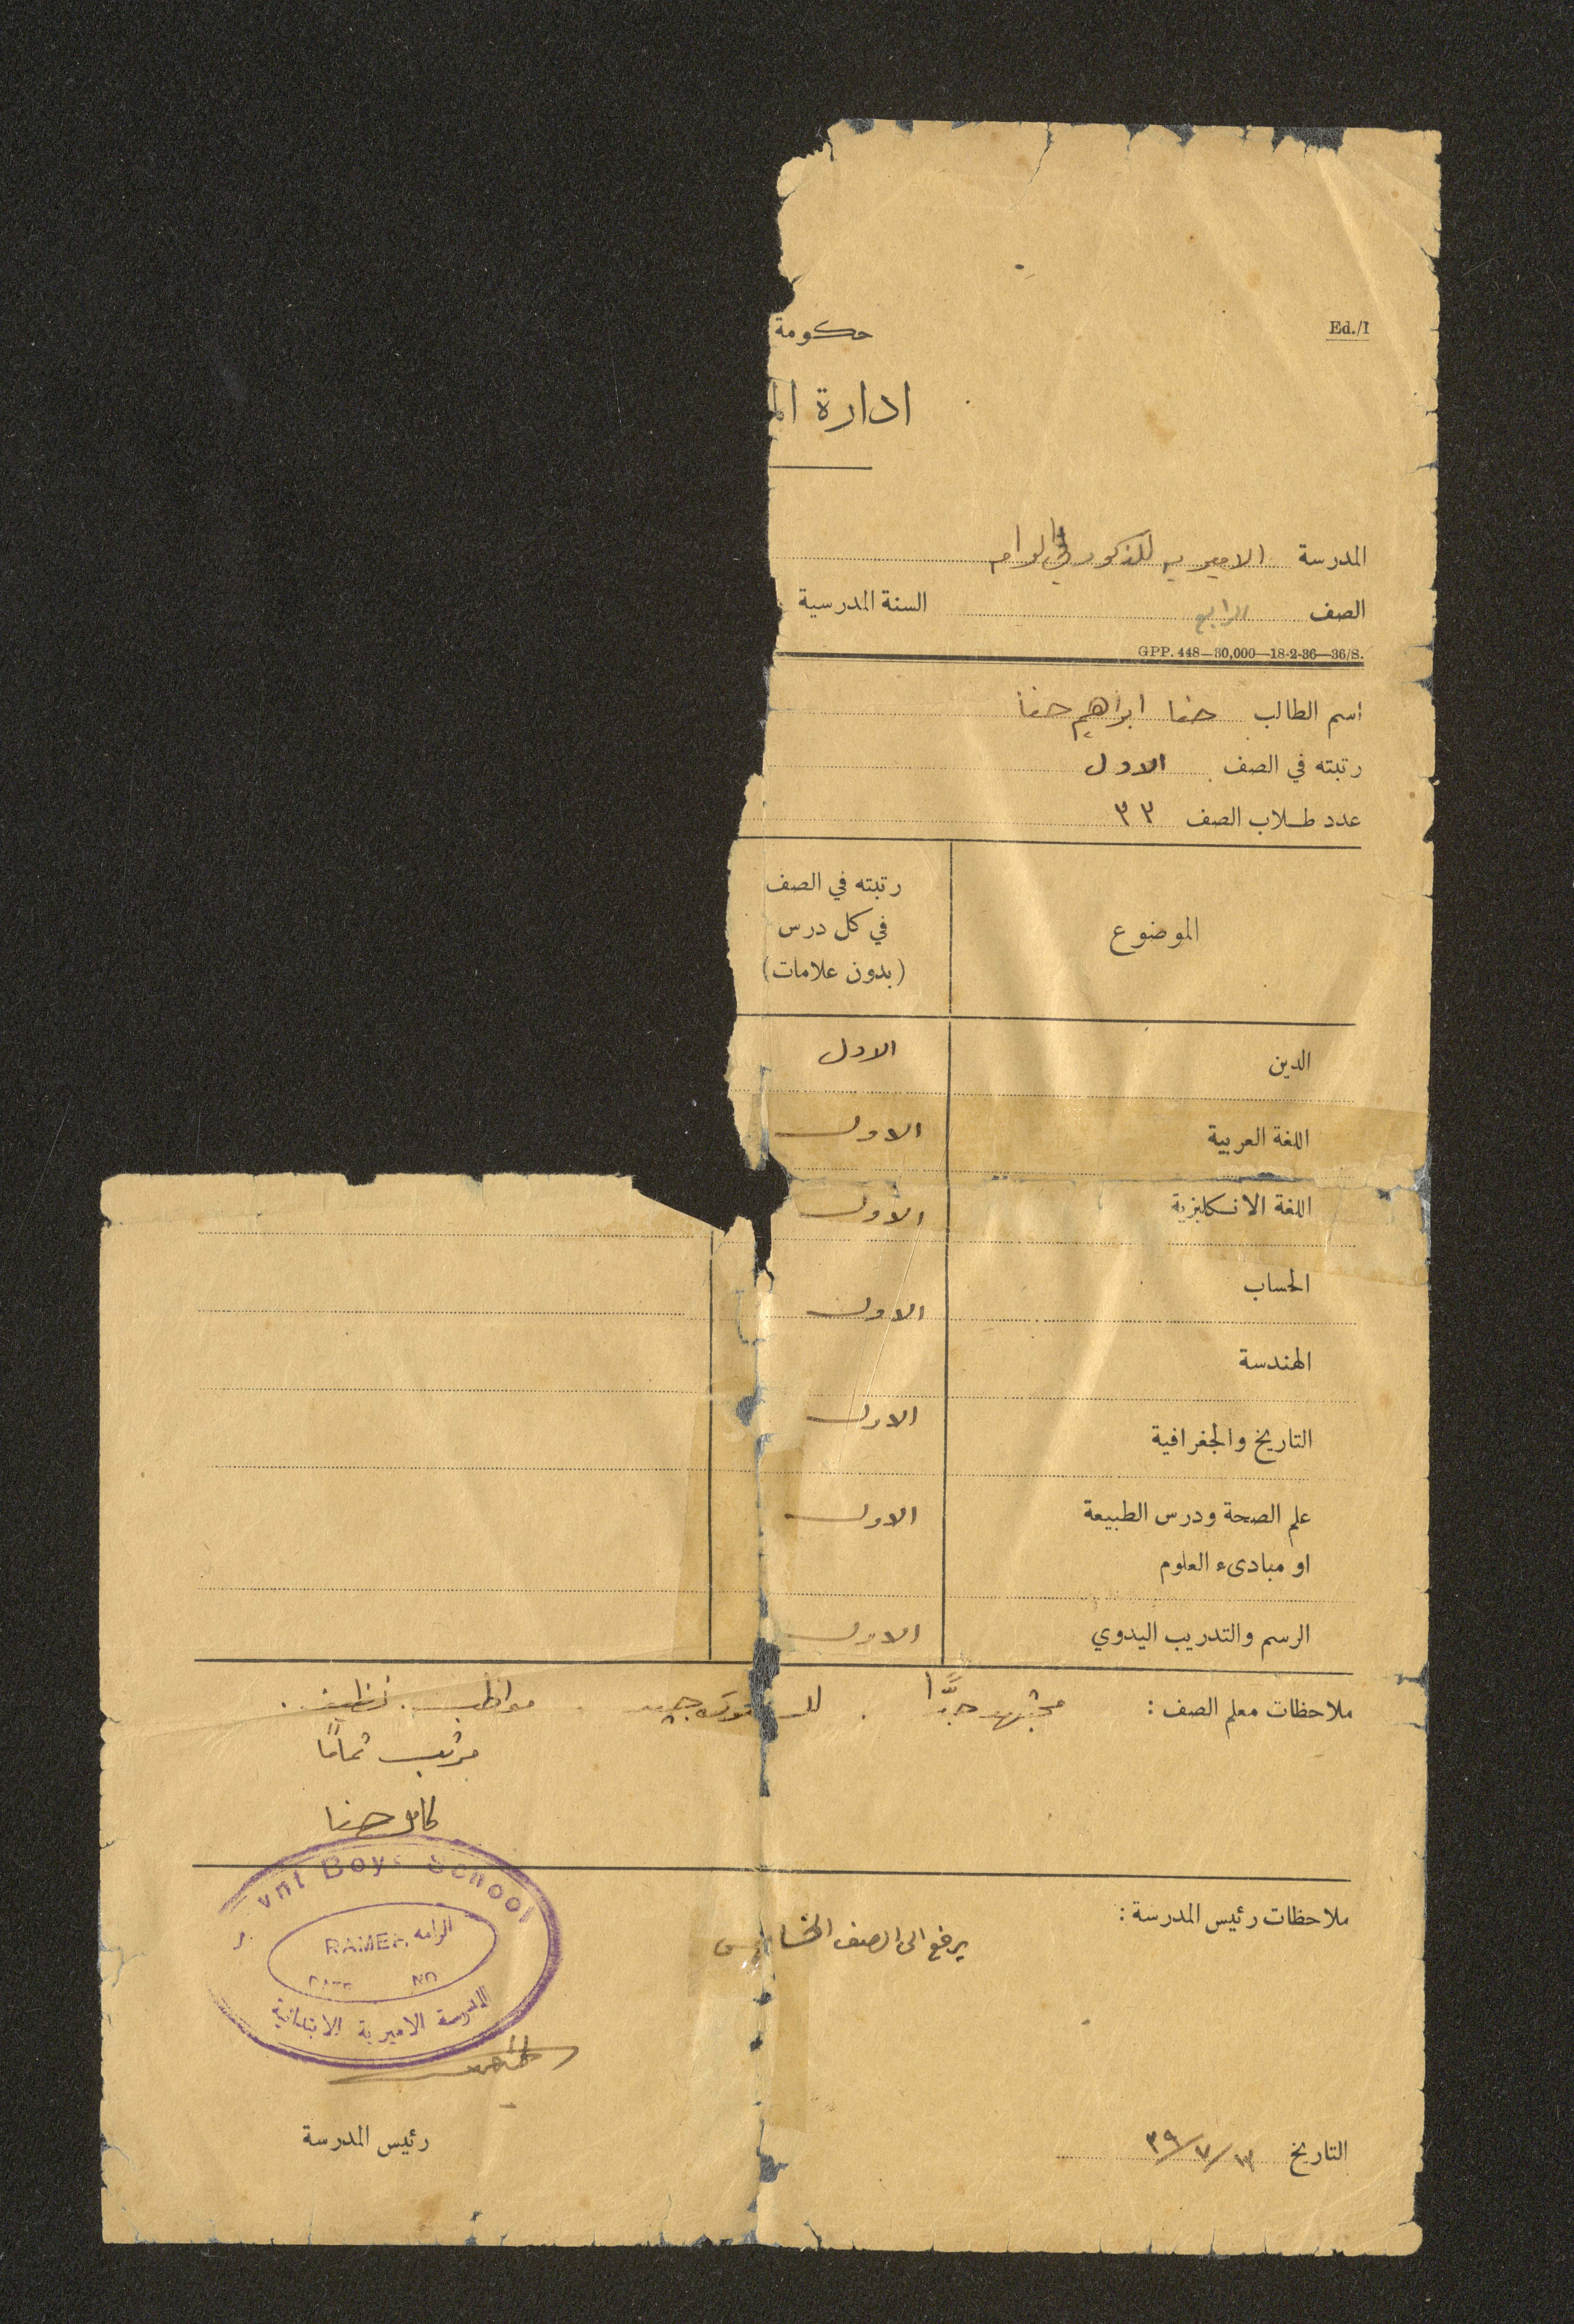 Ed./1
حكومة
ادارة
المدرسة الاميريه للذكور في الرامه
الصف الرابع السنة المدرسية
GPP. 448—30,000—18-2-36—36/S.
اسم الطالب حنا ابراهيم حنا
رتبته في الصف الاول
عدد طلاب الصف ٣٣
الموضوع
رتبته في الصف
في كل درس
(بدون علامات)
الدين الاول
اللغة العربية الاول
اللغة الانكليزية الاول
الحساب الاول
الهندسة
التاريخ والجغرافية الاول
علم الصحة ودرس الطبيعة الاول
او مبادىء العلوم
الرسم والتدريب اليدوي الاول
ملاحظات معلم الصف : مجتهد جدًّا . جيد . مواظب . نظيف .
مرتب تمامًا
كامل حنا
ملاحظات رئيس المدرسة :
يرفع الى الصف الخامس
vnt Boys School
RAMEH الرامه
المدرسة الاميرية الابتدائية
رئيس المدرسة
التاريخ ١٣/٧/٣٩